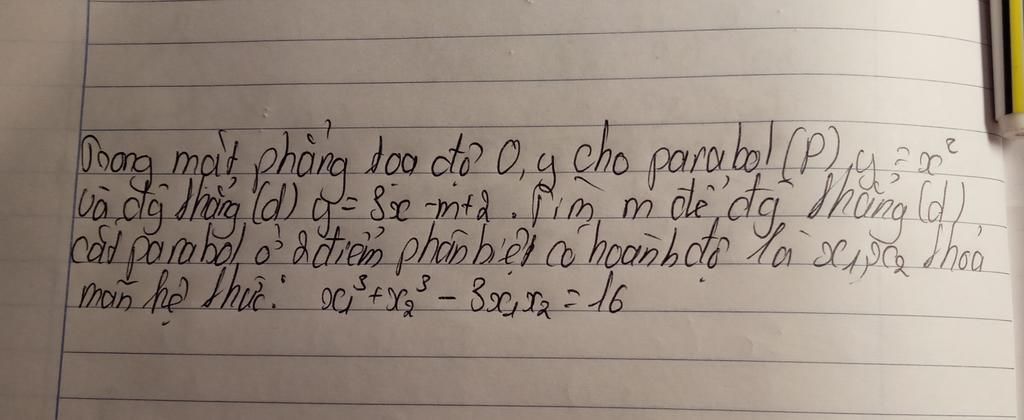 Trong mặt phẳng toạ độ O, y cho parabol (P), y = x²
và đg thẳng (d) y = 3x - m + 2. Tìm m để đg thẳng (d)
cắt parabol ở 2 điểm phân biệt có hoành độ là x₁, x₂ thoả
mãn hệ thức: x₁³ + x₂³ - 3x₁x₂ = 16